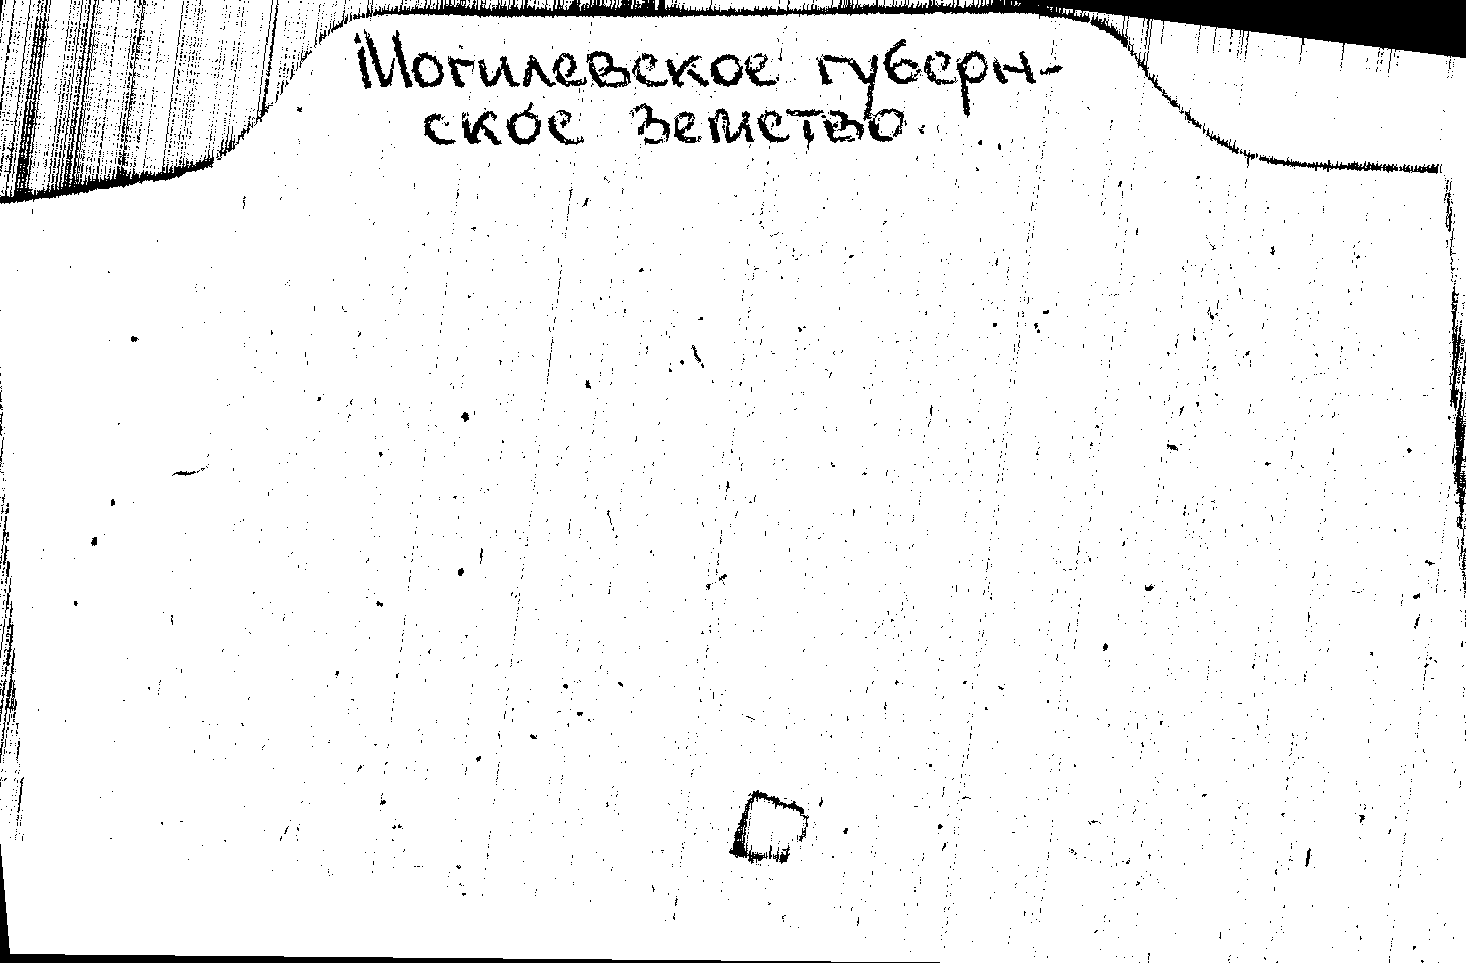 Могилевское губерн-
ское земство